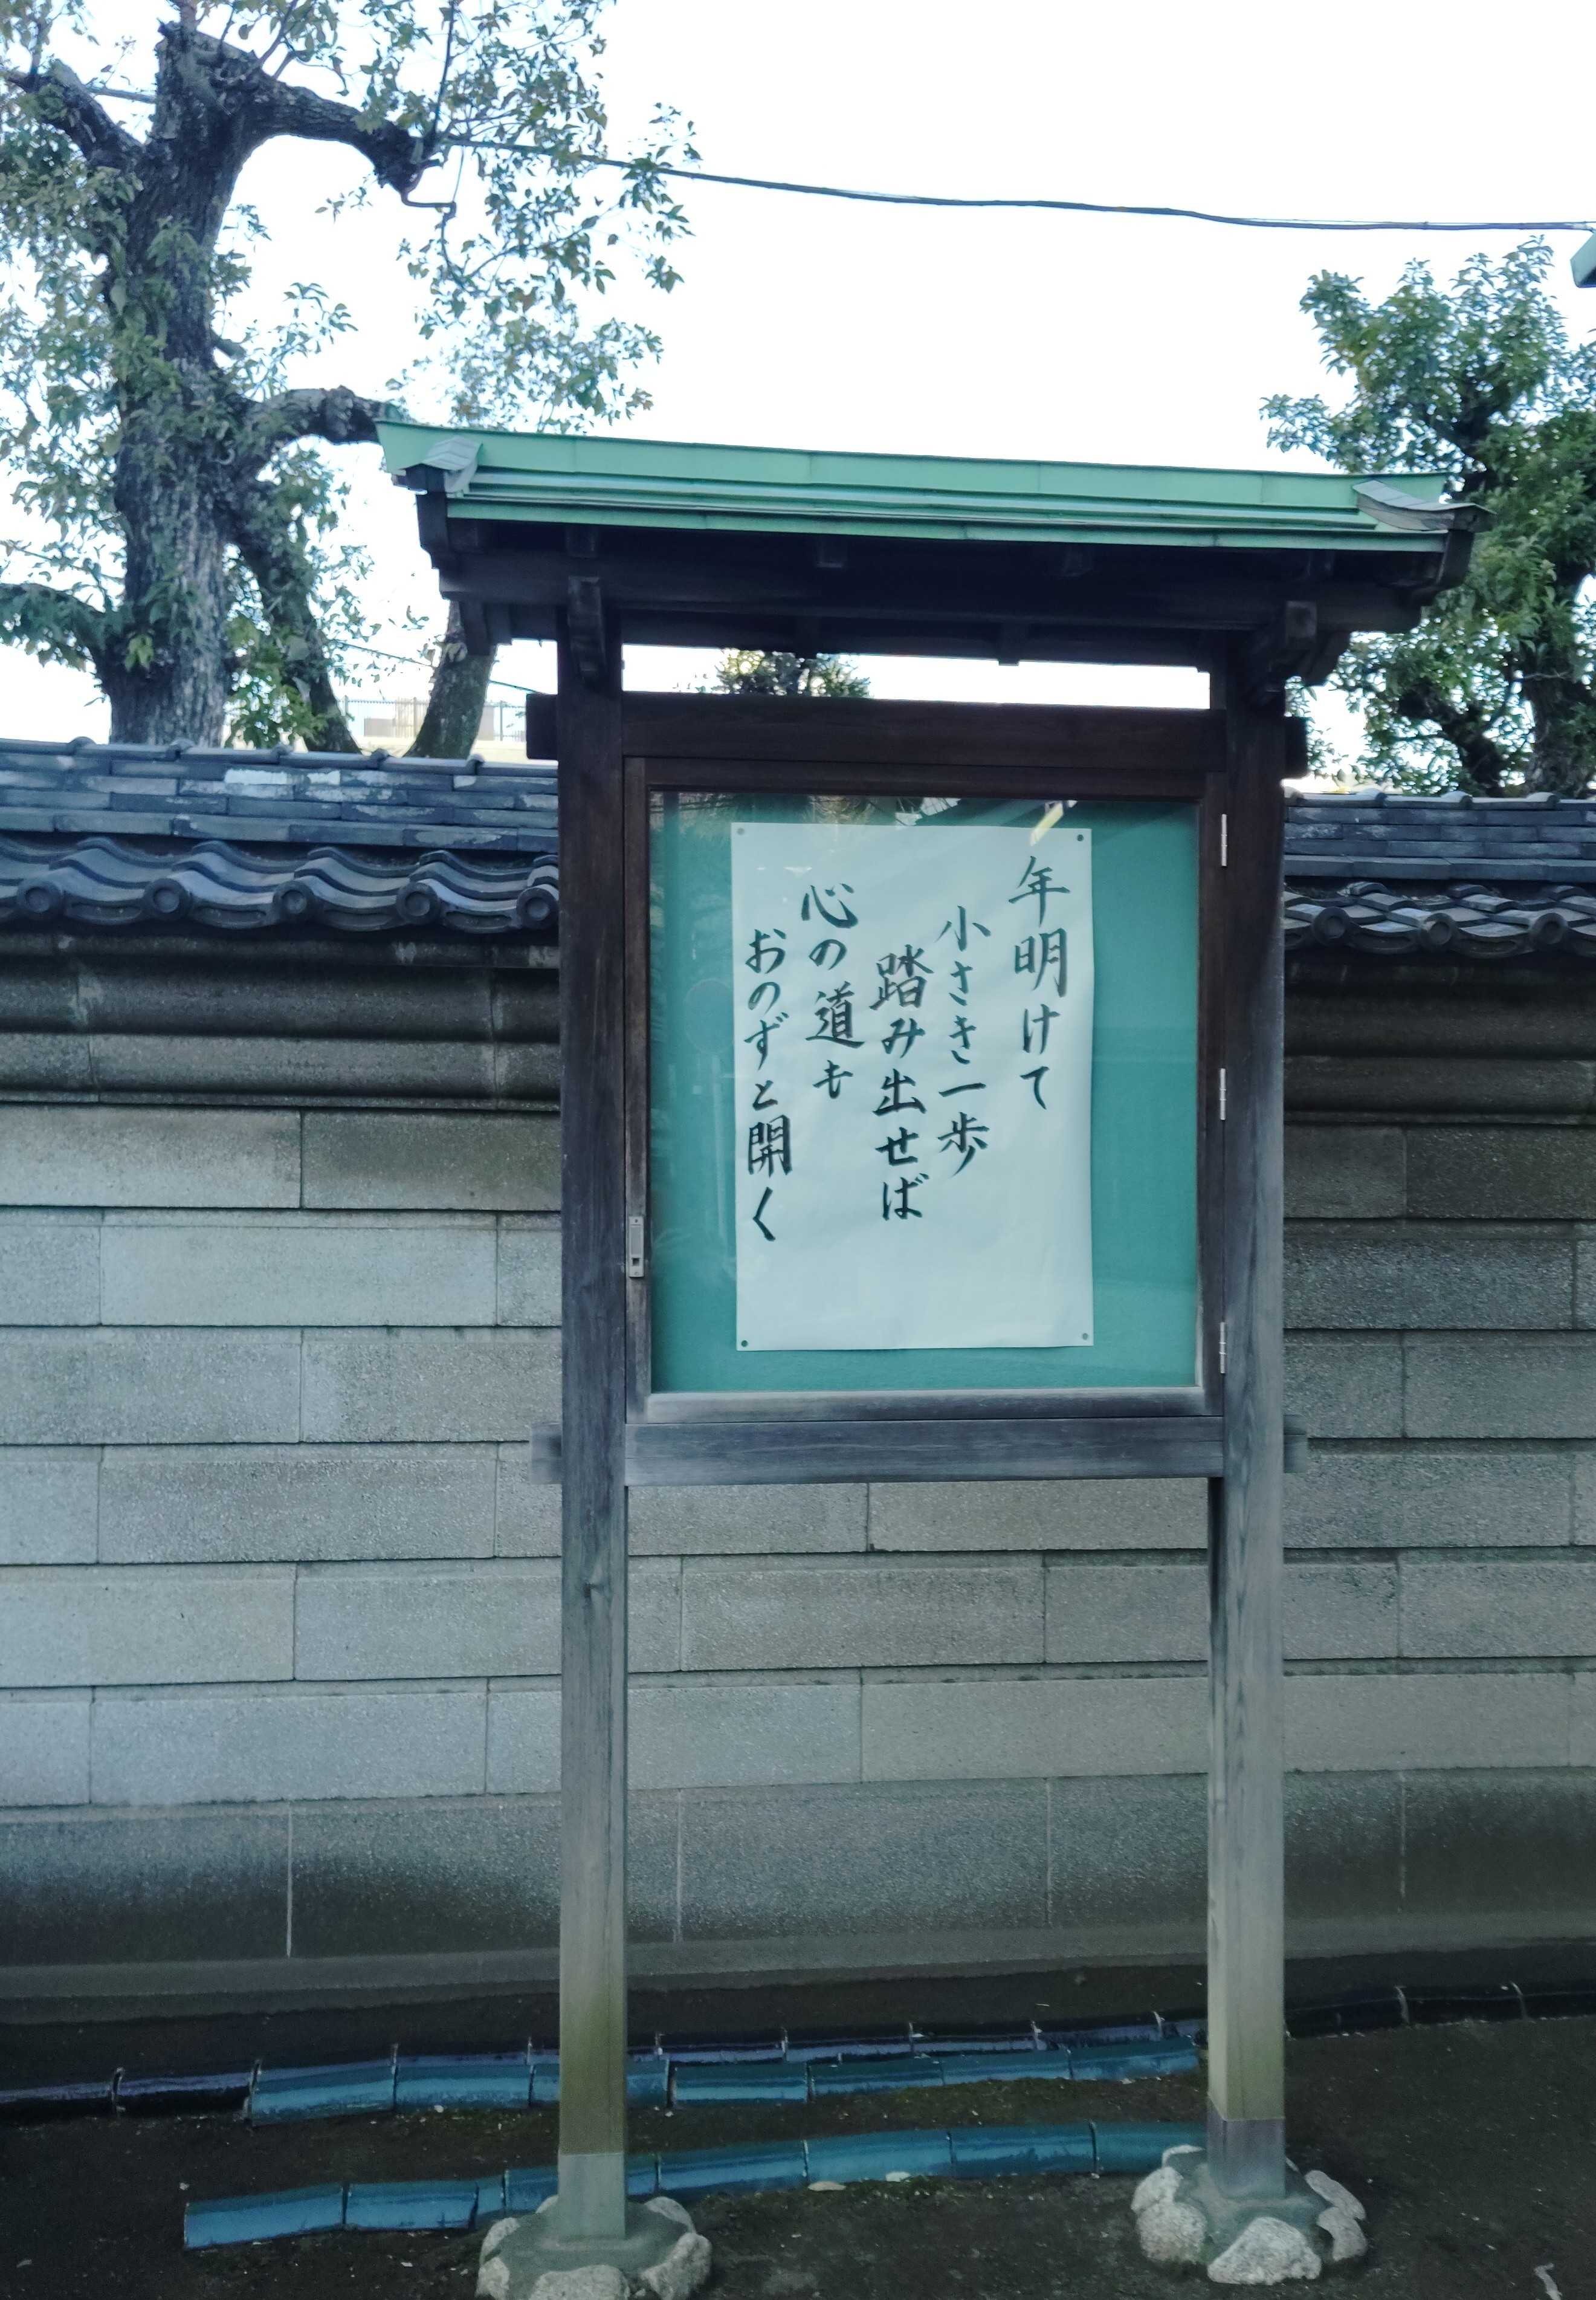 年明けて
小さき一歩
踏み出せば
心の道も
おのずと開く